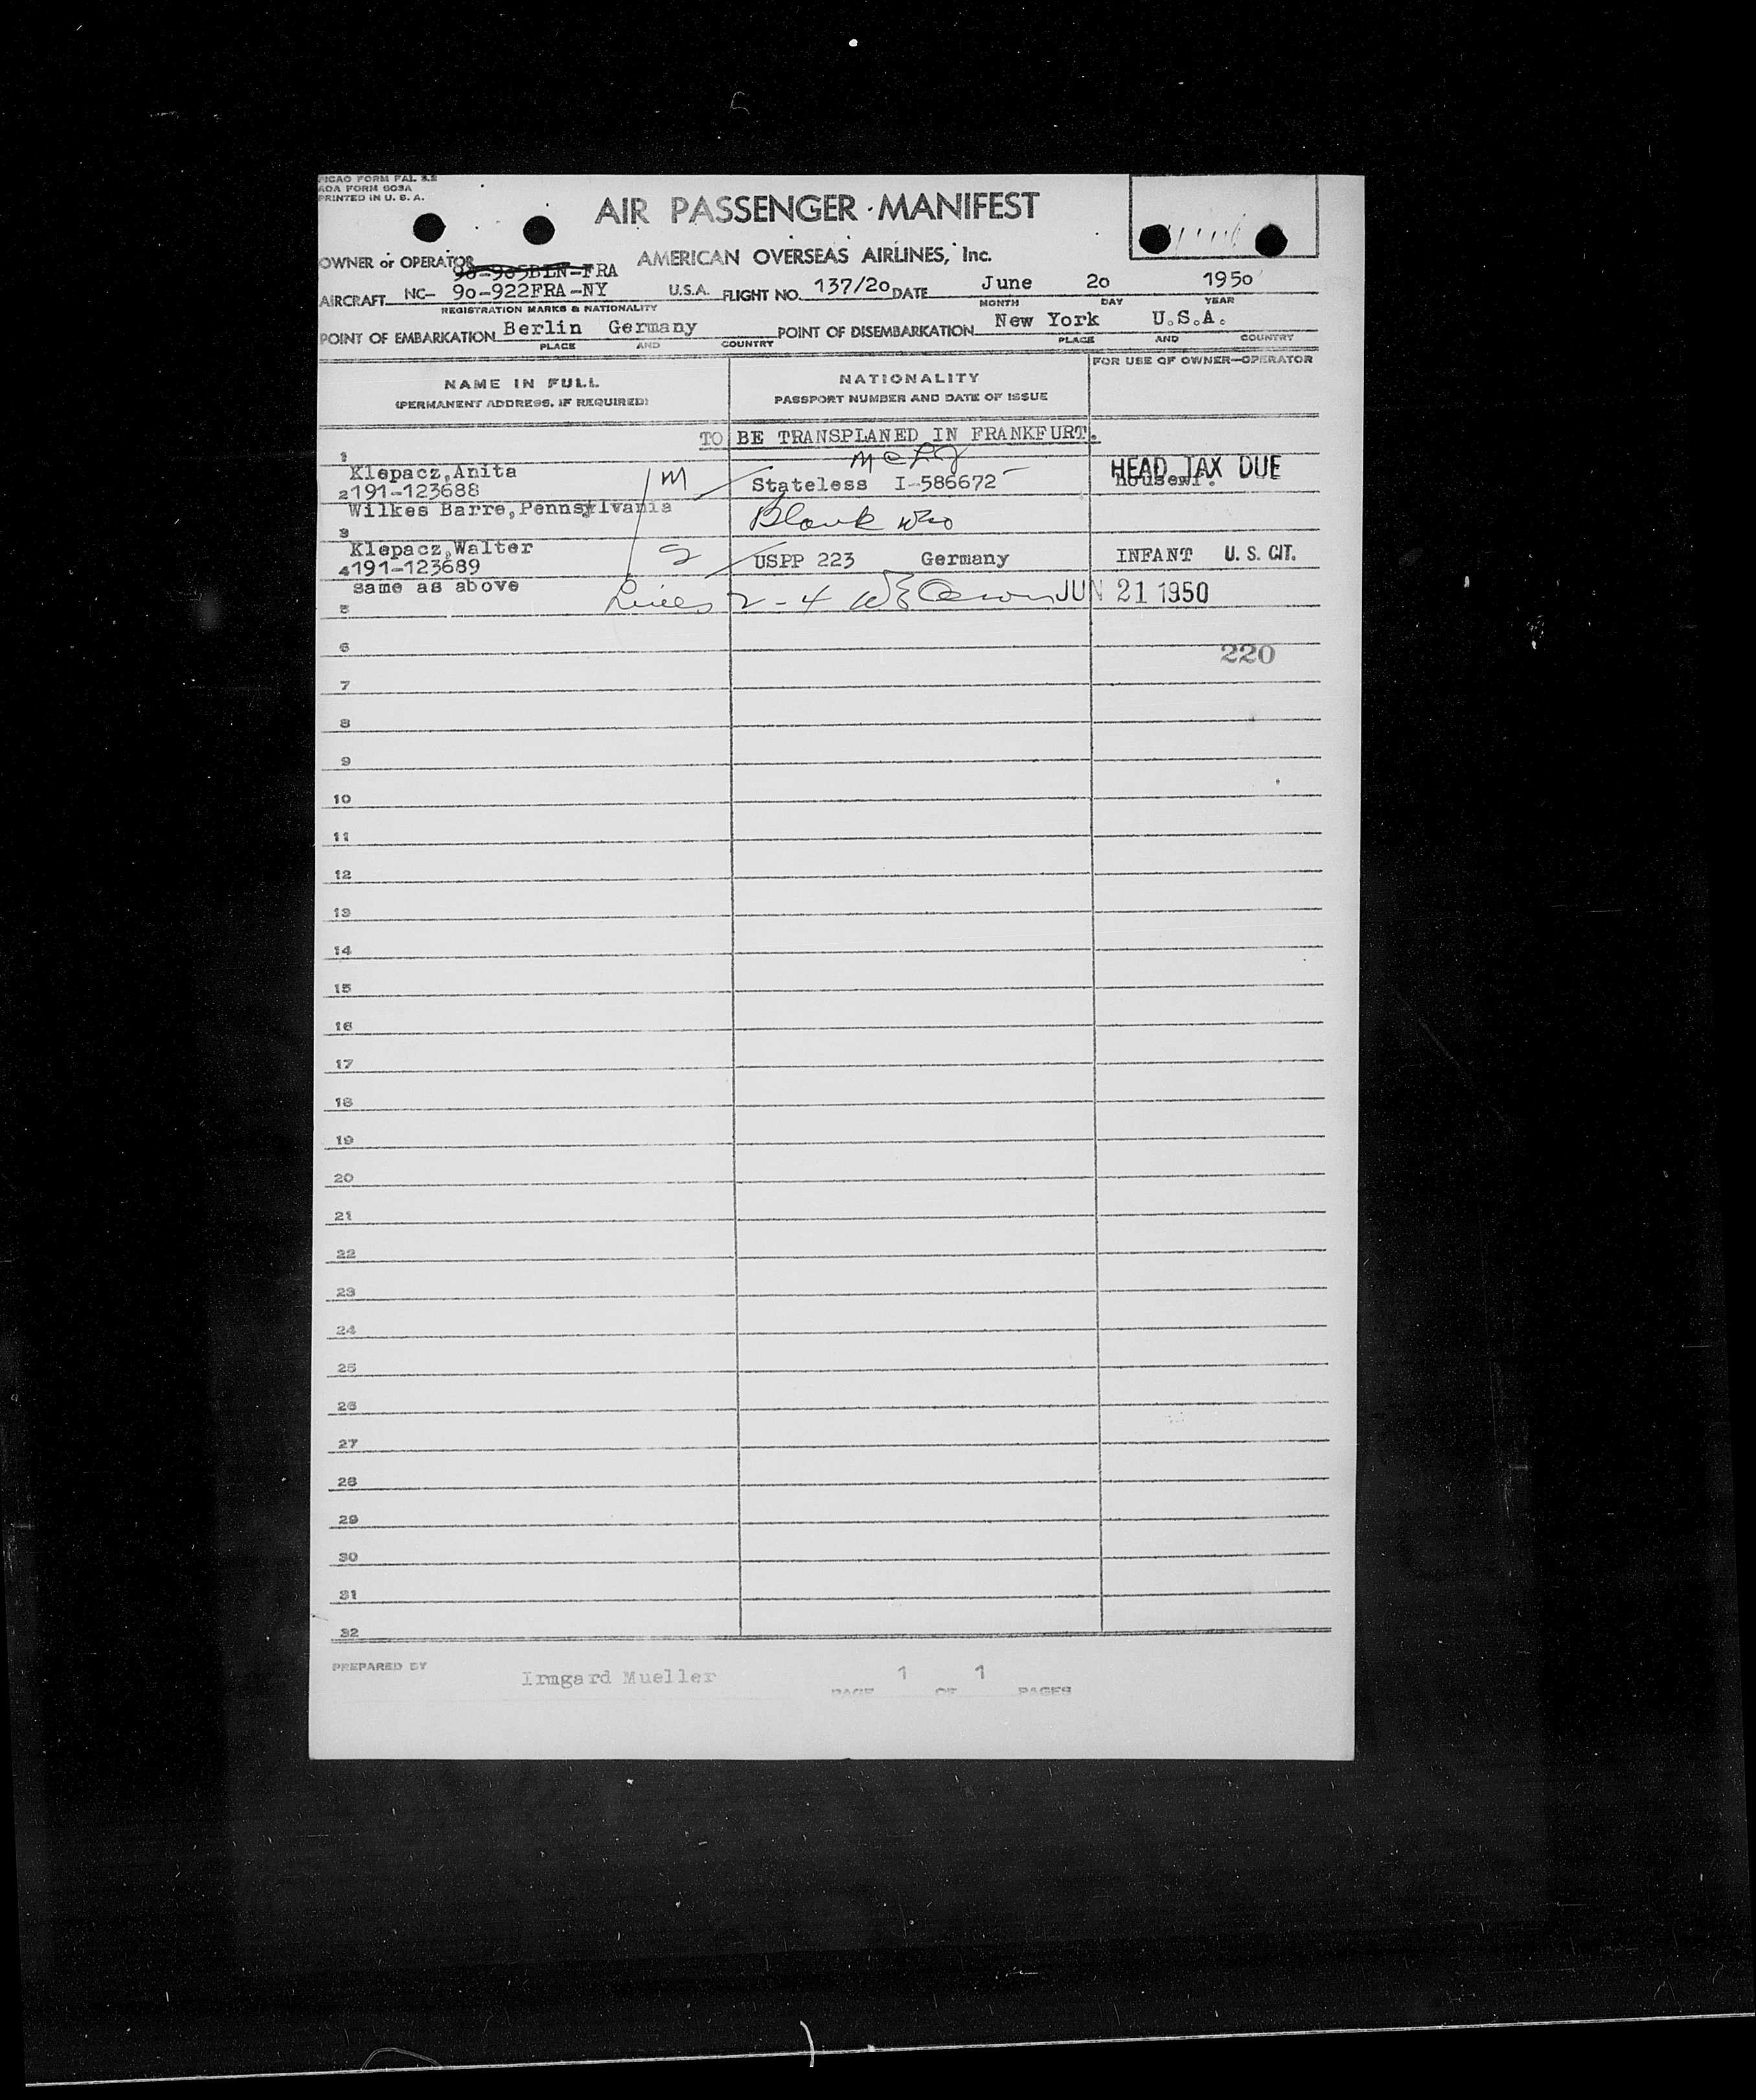 PICAO FORM PAL 2.2
AOA FORM 603A
PRINTED IN U. S. A.
AIR PASSENGER MANIFEST
OWNER or OPERATOR AMERICAN OVERSEAS AIRLINES, Inc.
90-905BLN-FRA
AIRCRAFT NC- 90-922FRA-NY U.S.A. FLIGHT NO. 137/20 DATE June 20 1950
REGISTRATION MARKS & NATIONALITY MONTH DAY YEAR
POINT OF EMBARKATION Berlin Germany POINT OF DISEMBARKATION New York U.S.A.
PLACE AND COUNTRY PLACE AND COUNTRY
NAME IN FULL
(PERMANENT ADDRESS, IF REQUIRED)
NATIONALITY
PASSPORT NUMBER AND DATE OF ISSUE
FOR USE OF OWNER-OPERATOR
TO BE TRANSPLANED IN FRANKFURT.
1
Klepacz,Anita M HEAD TAX DUE
2 191-123688 Stateless I-586672 housewf.
Wilkes Barre,Pennsylvania Blank
3
Klepacz,Walter
4 191-123689 USPP 223 Germany INFANT U. S. CIT.
same as above
5 Lines 2-4 JUN 21 1950
6 220
7
8
9
10
11
12
13
14
15
16
17
18
19
20
21
22
23
24
25
26
27
28
29
30
31
32
PREPARED BY Irmgard Mueller PAGE 1 OF 1 PAGES